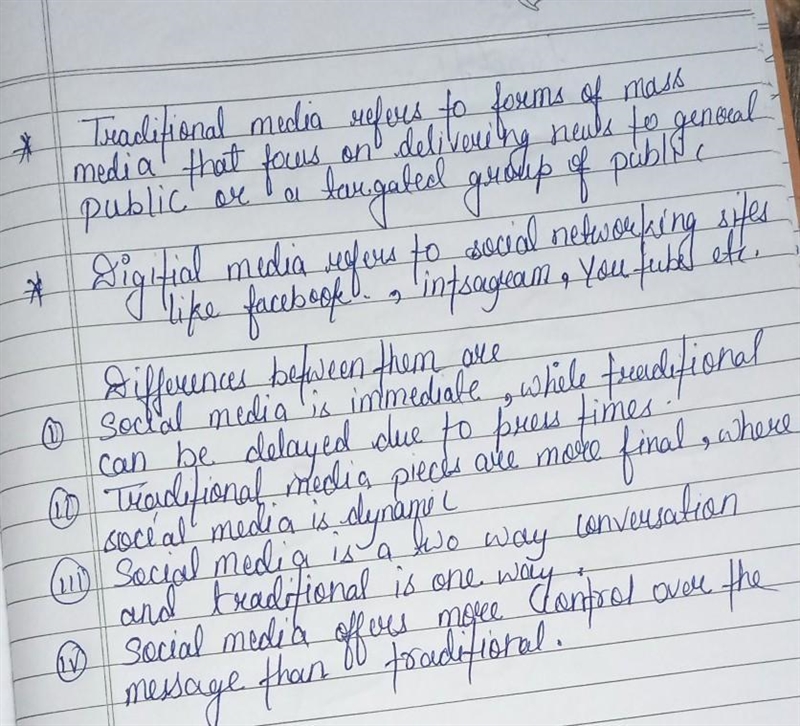 * Traditional media refers to forms of mass
media that focus on delivering news to general
public or a targated group of public
* Digitial media refers to social networking sites
like facebook., intsagram, You tubes etc.
Differences between them are
(i) Social media is immediate, while traditional
can be delayed due to press times.
(ii) Traditional media pieces are more final, where
social media is dynamic
(iii) Social media is a two way conversation
and traditional is one way.
(iv) Social media offers more control over the
message than traditional.